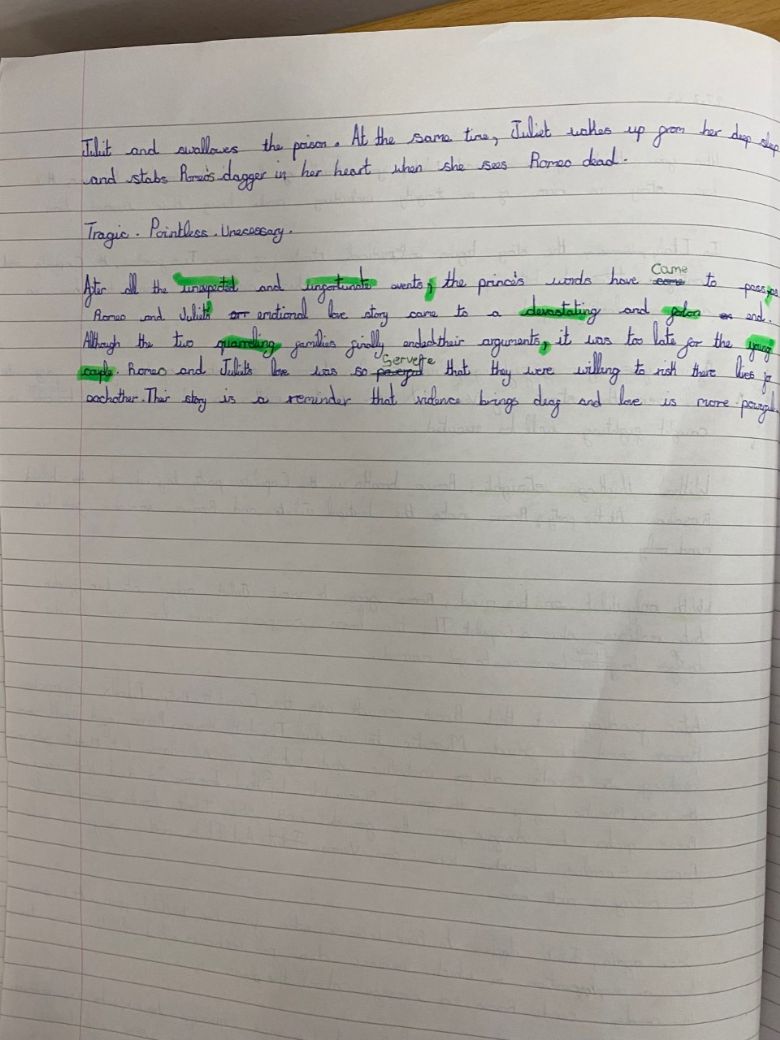 Juliit and swallows the poison. At the same time, Juliet wakes up from her deep sleep
and stabs Romeo's dagger in her heart when she sees Romeo dead.
Tragic. Pointless. Unecessary.
After all the unexpected and unfortunate events, the prince's words have came to pass,
Came
Romeo and Juliets emotional love story came to a devastating and end.
Although the two quarreling families finally ended their arguments, it was too late for the young
couple. Romeo and Juliets love was so powerful that they were willing to risk there lives for
eachother. Their story is a reminder that violence brings and love is more powerful